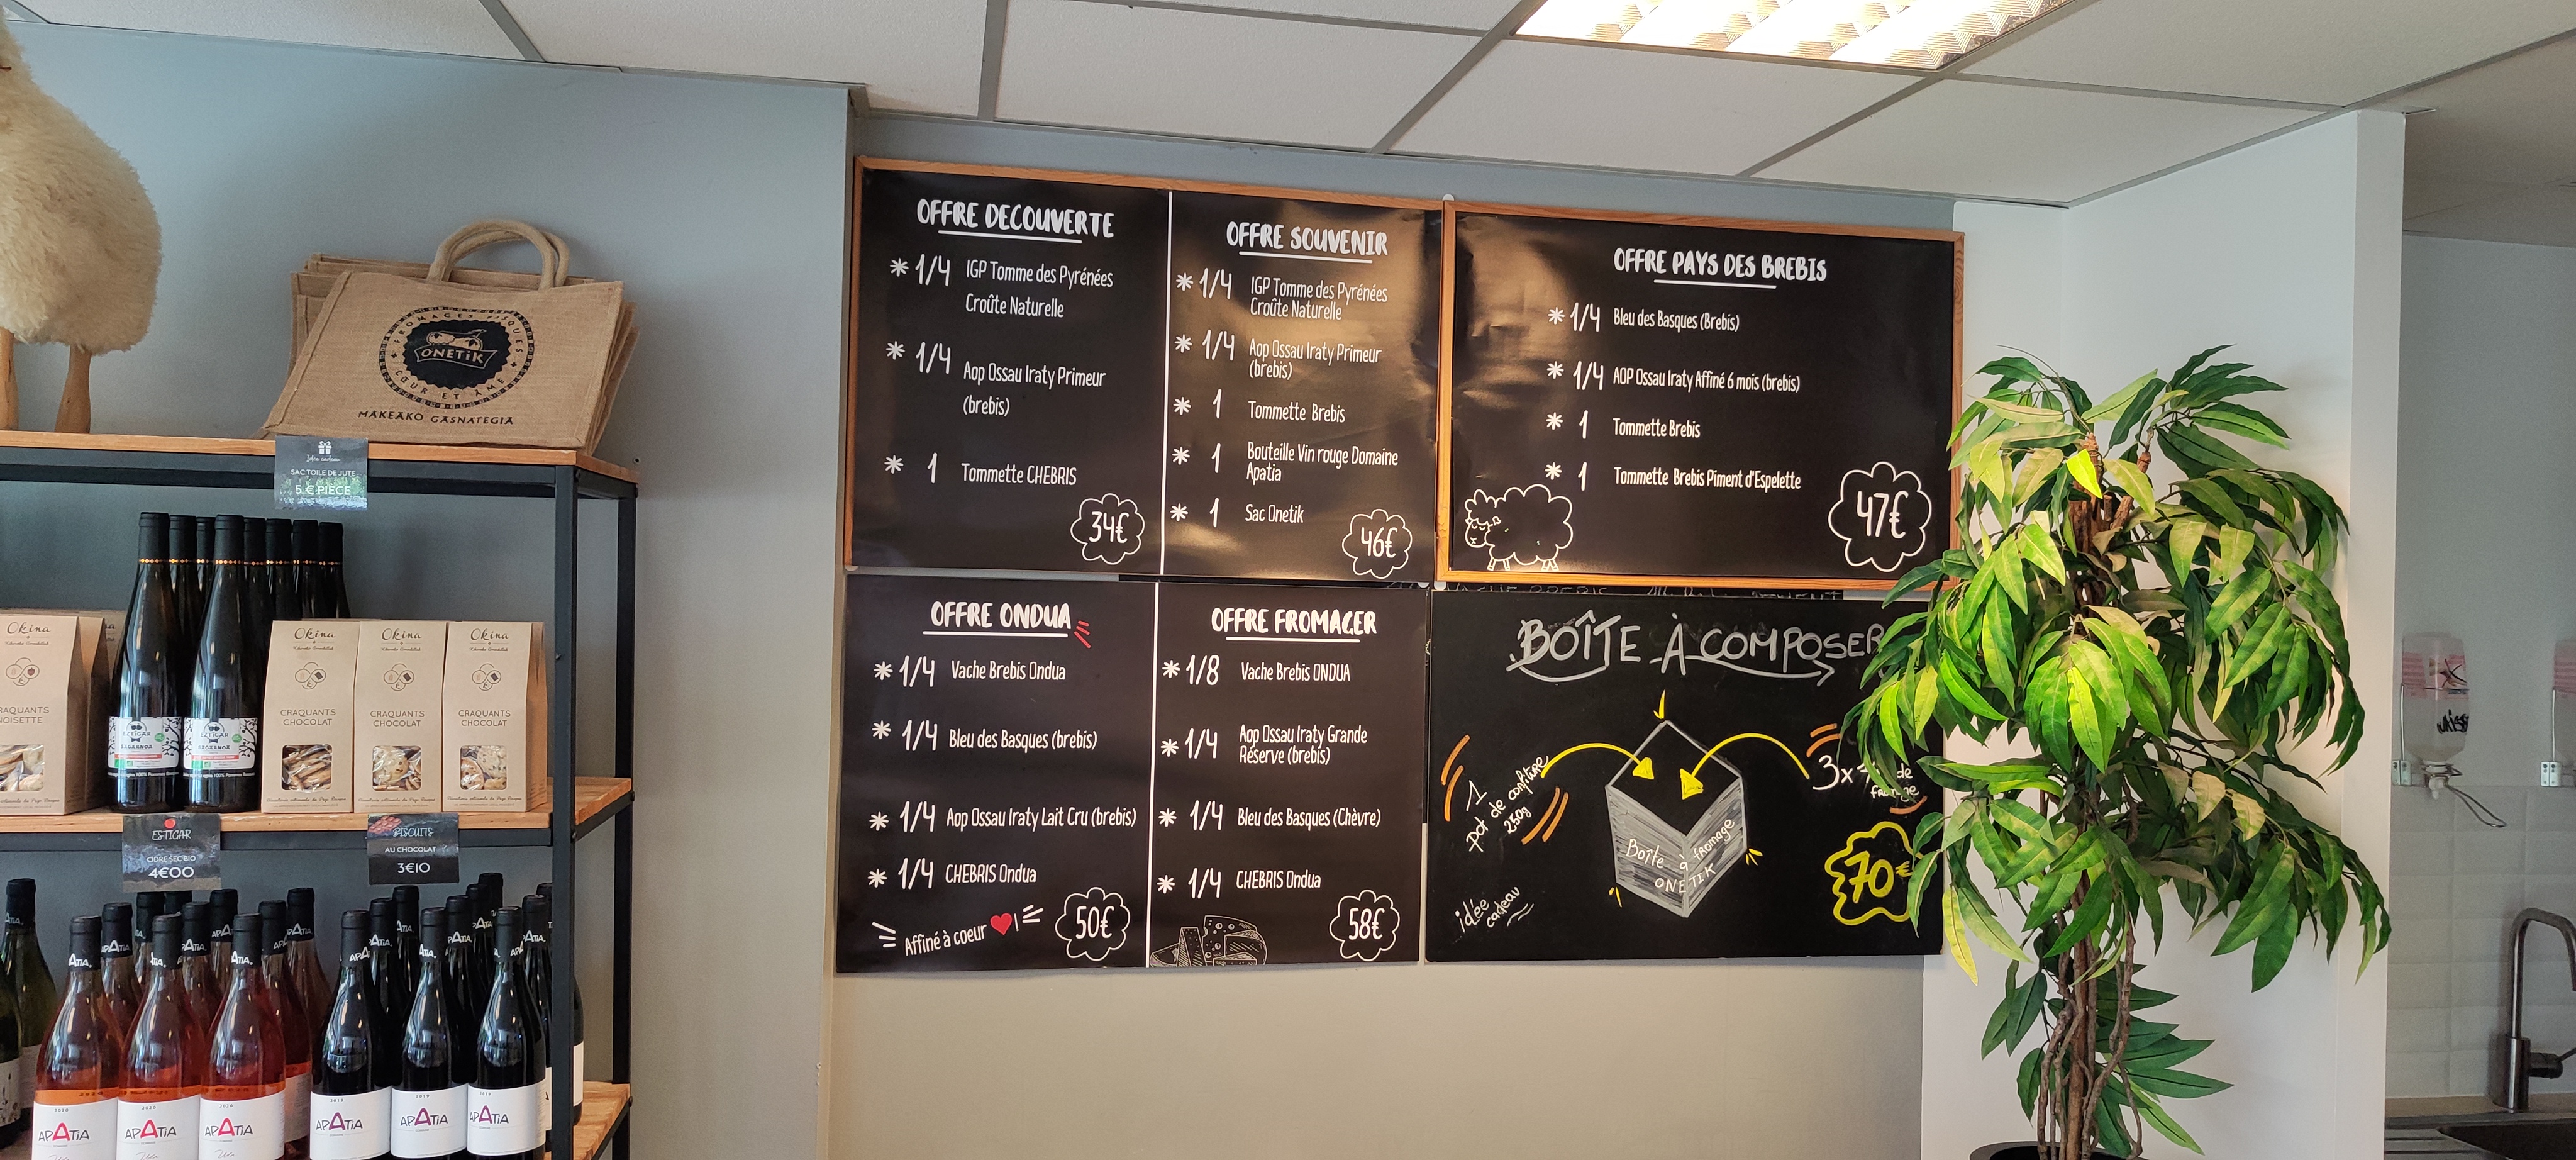 FROMAGES BASQUES
ONETIK
CŒUR ET ÂME
MAKEAKO GASNATEGIA
Idée cadeau
SAC TOILE DE JUTE
5 € PIECE
Okina
CRAQUANTS
NOISETTE
Okina
CRAQUANTS
CHOCOLAT
Okina
CRAQUANTS
CHOCOLAT
Okina
CRAQUANTS
CHOCOLAT
EZTIGAR
EZTIGAR
ESTIGAR
CIDRE SEC BIO
4€00
BISCUITS
AU CHOCOLAT
3€10
2020
APATIA
2020
APATIA
2020
APATIA
2019
APATIA
2019
APATIA
2019
APATIA
OFFRE DECOUVERTE
* 1/4 IGP Tomme des Pyrénées
Croûte Naturelle
* 1/4 Aop Ossau Iraty Primeur
(brebis)
* 1 Tommette CHEBRIS
34€
OFFRE SOUVENIR
* 1/4 IGP Tomme des Pyrénées
Croûte Naturelle
* 1/4 Aop Ossau Iraty Primeur
(brebis)
* 1 Tommette Brebis
* 1 Bouteille Vin rouge Domaine
Apatia
* 1 Sac Onetik
46€
OFFRE PAYS DES BREBIS
* 1/4 Bleu des Basques (Brebis)
* 1/4 AOP Ossau Iraty Affiné 6 mois (brebis)
* 1 Tommette Brebis
* 1 Tommette Brebis Piment d'Espelette
47€
OFFRE ONDUA
* 1/4 Vache Brebis Ondua
* 1/4 Bleu des Basques (brebis)
* 1/4 Aop Ossau Iraty Lait Cru (brebis)
* 1/4 CHEBRIS Ondua
Affiné à coeur ❤!
50€
OFFRE FROMAGER
* 1/8 Vache Brebis ONDUA
* 1/4 Aop Ossau Iraty Grande
Réserve (brebis)
* 1/4 Bleu des Basques (Chèvre)
* 1/4 CHEBRIS Ondua
58€
BOÎTE À COMPOSER
1
pot de confiture
250g
3x de
fromage
Boîte à fromage
ONETIK
idée
cadeau
70€